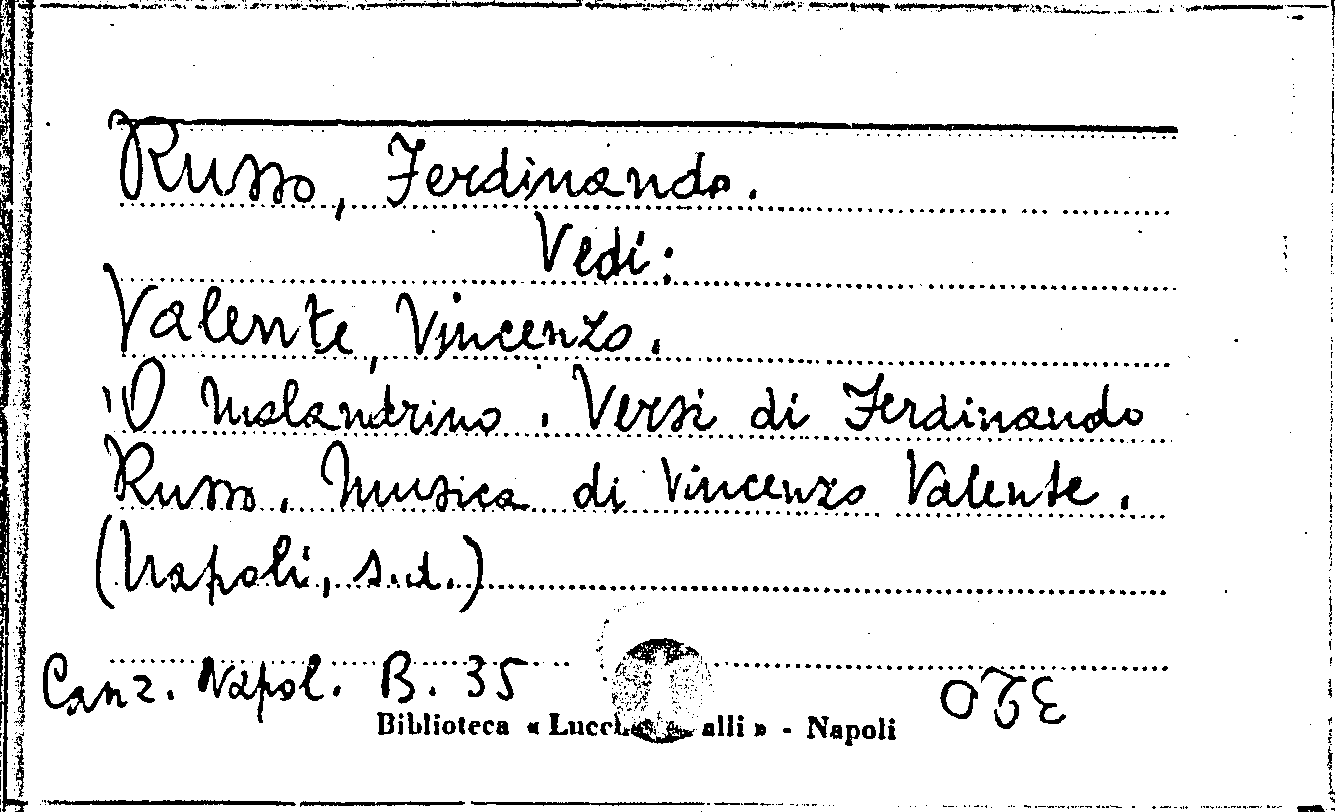 Russo, Ferdinando.
Vedi:
Valente, Vincenzo.
'O Malandrino. Versi di Ferdinando
Russo. Musica di Vincenzo Valente.
(Napoli, s.d.)
Canz. Napol. B. 35
Biblioteca « - Napoli